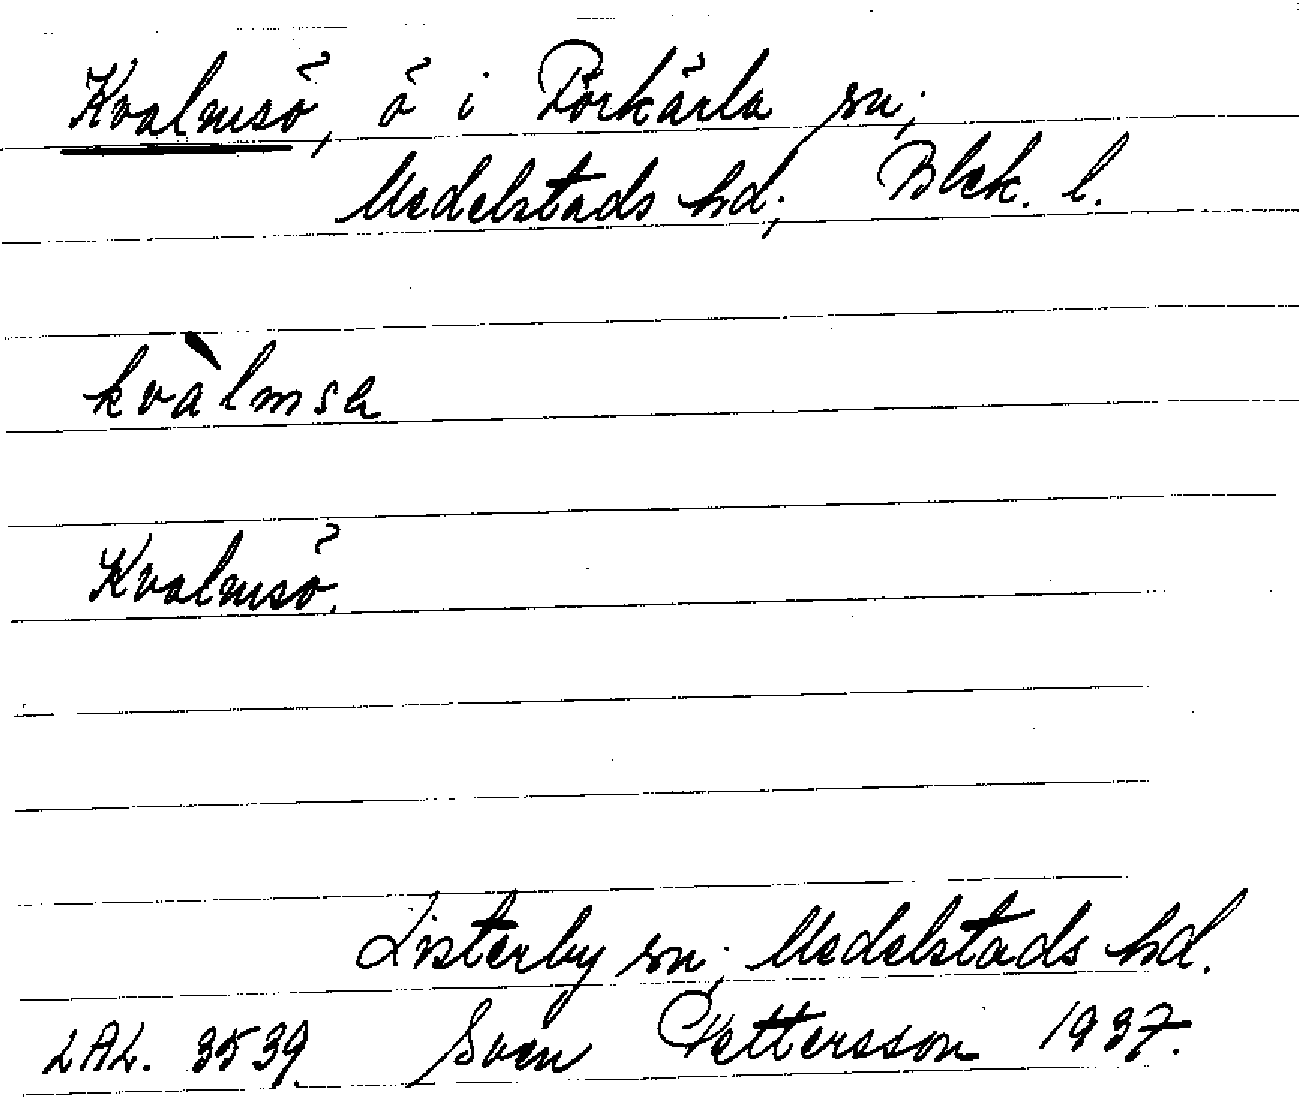 Kvalmsö, ö i Förkärla sn;
Medelstads hd; Blek. l.
kvàlmsa
Kvalmsö.
Listerby sn; Medelstads hd.
LAL. 3539. Sven Pettersson 1937.